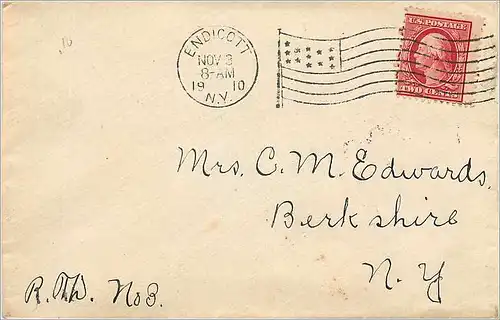 ENDICOTT
NOV 3
8-AM
19 10
N.Y.
U.S. POSTAGE
TWO CENTS
Mrs. C. M. Edwards,
Berkshire
N. Y
No 3.